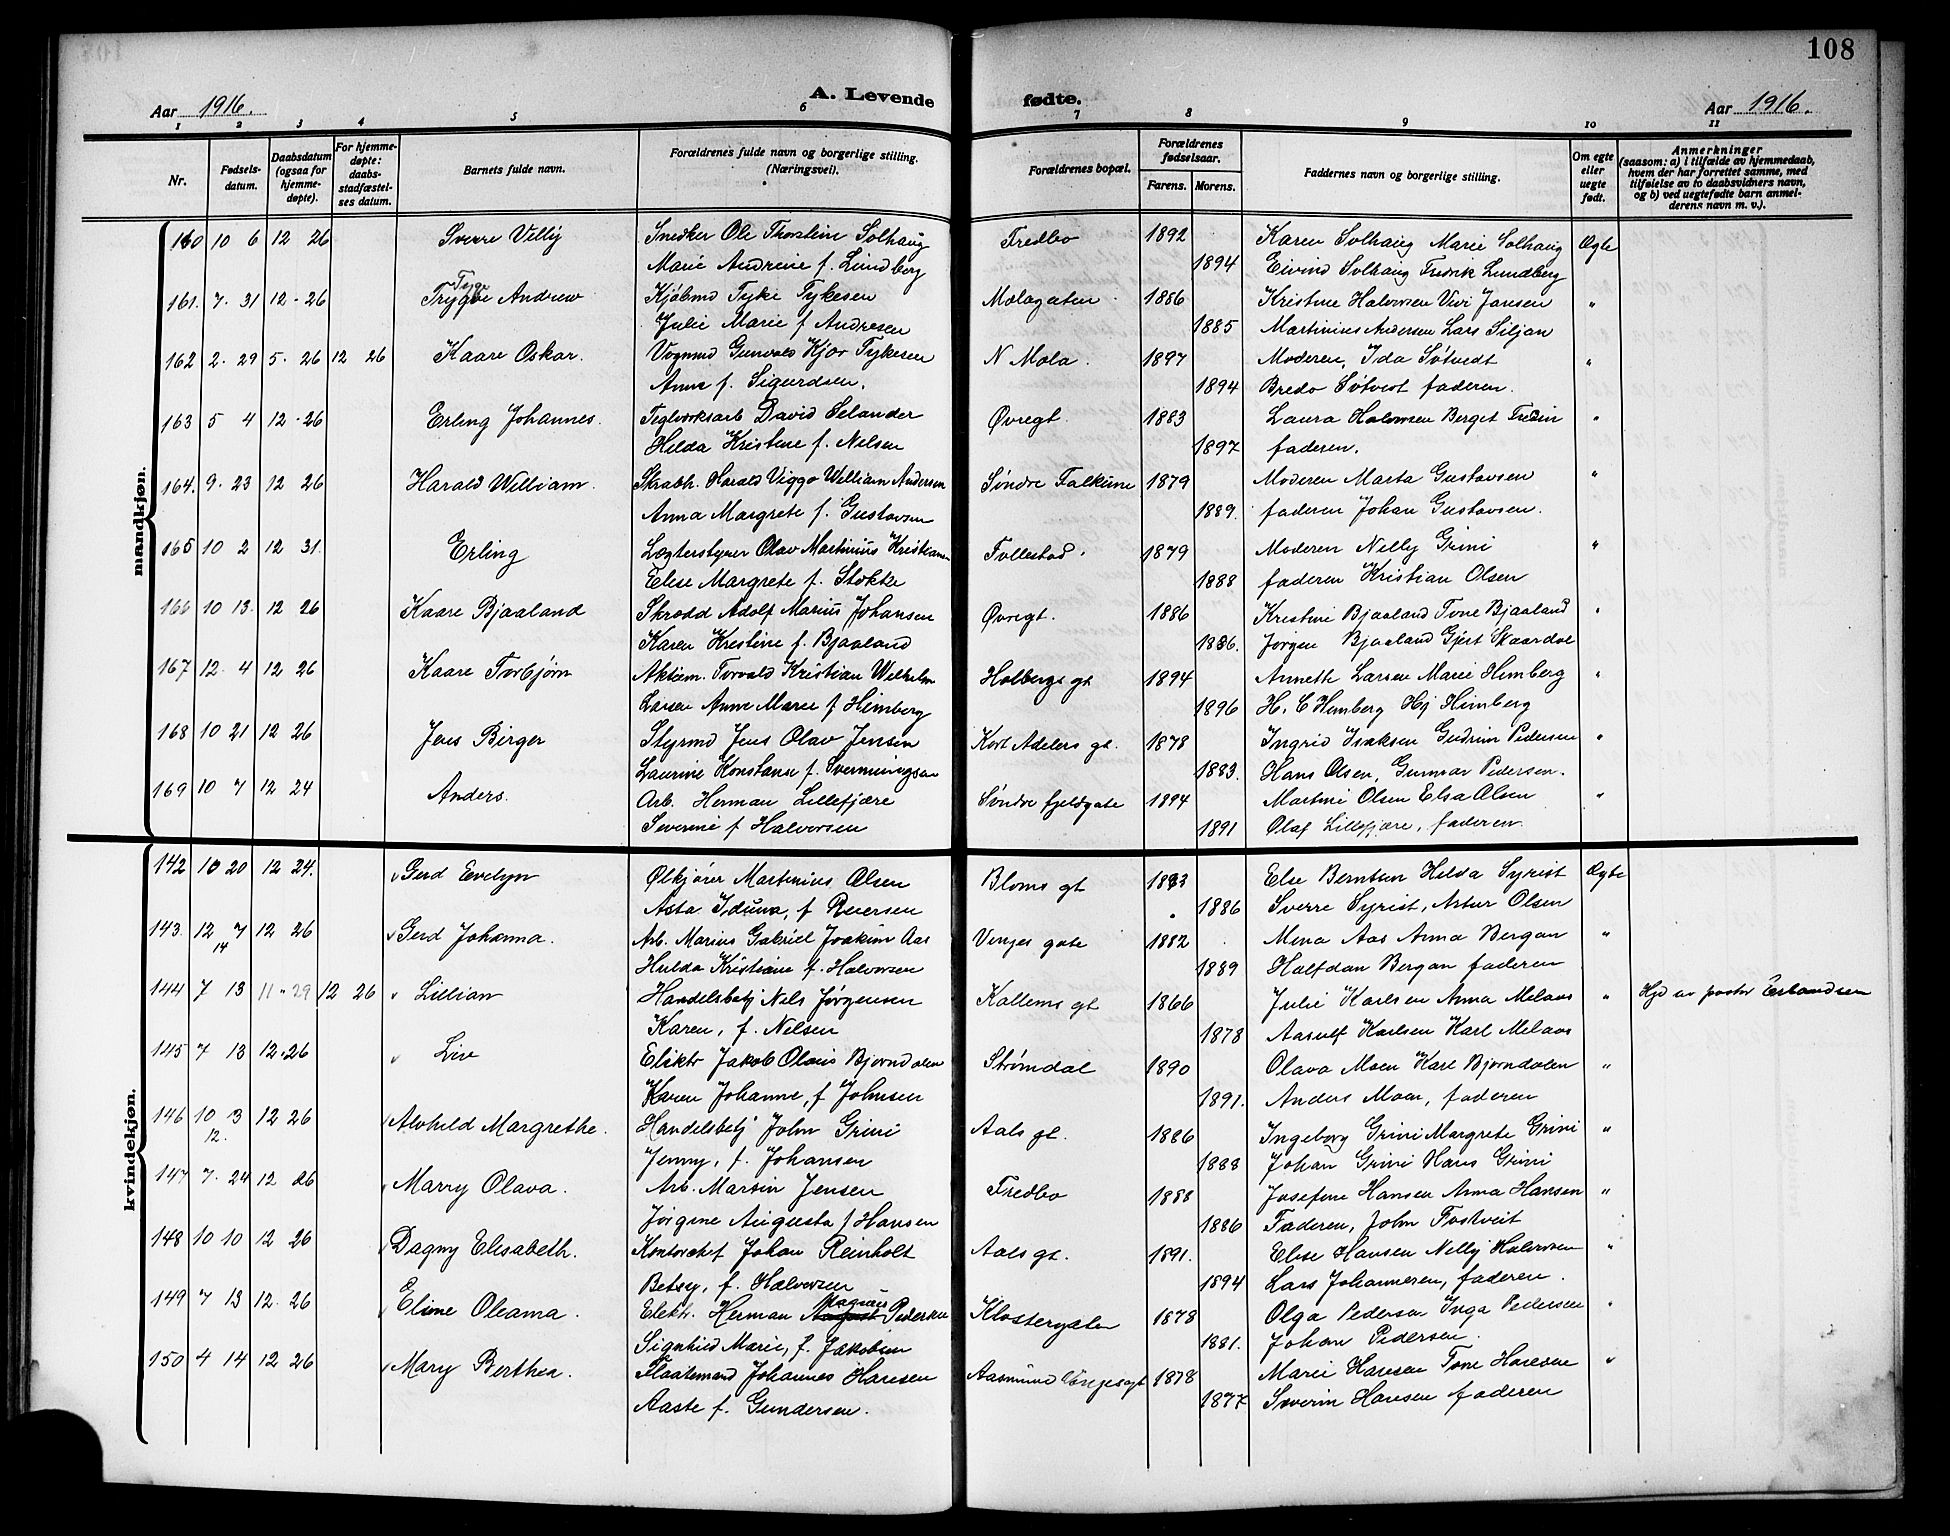 108
Aar 1916. A. Levende fødte. Aar 1916.
1 2 3 4 5 6 7 8 9 10 11
Nr.
Fødsels-
datum.
Daabsdatum
(ogsaa for
hjemme-
døpte).
For hjemme-
døpte:
daabs-
stadfæstel-
ses datum.
Barnets fulde navn.
Forældrenes fulde navn og borgerlige stilling.
(Næringsvei).
Forældrenes bopæl.
Forældrenes
fødselsaar.
Farens. Morens.
Faddernes navn og borgerlige stilling.
Om egte
eller
uegte
født.
Anmerkninger
(saasom: a) i tilfælde av hjemmedaab,
hvem der har forrettet samme, med
tilføielse av to daabsvidners navn,
og b) ved uegtefødte barn anmel-
derens navn m. v.).
mandkjøn.
160 10 6 12 26 Sverre Villy Snedker Ole Thorstein Solhaug Fredbo 1892 Karen Solhaug Marie Solhaug Ægte
Marie Andrine f. Lundberg 1894 Eivind Solhaug Fredrik Lundberg
Tyge
161. 7. 31 12-26 Trygve Andrew Kjøbmd Tyke Tykesen Mælagaten 1886 Kristine Halvorsen Vivi Jansen "
Julie Marie f Andresen 1885 Martinius Andersen Lars Siljan
162 2. 29 5. 26 12 26 Kaare Oskar. Vognmd Gunvald Kjør Tykesen N Mæla. 1897 Moderen, Ida Søtvedt "
Anna f. Sigurdsen. 1894 Bredo Søtvedt faderen.
163 5 4 12-26 Erling Johannes. Teglverksarb David Selander Øvregt. 1883 Laura Halvorsen Berget Fredin "
Hilda Kristine f. Nelsen 1897 faderen.
164. 9. 23 12 26 Harald William. Skrabh. Harald Viggo William Andersen Søndre Falkum 1879 Moderen Marta Gustavsen "
Anna Margrete f. Gustavsen 1889. faderen Johan Gustavsen.
165 10 2 12 31. Erling Lægterstyrer Olav Martinius Kristiansen Follestad. 1879 Moderen Nelly Grini "
Elise Margrete f. Stokke 1888 faderen Kristian Olsen
166 10 13. 12 26 Kaare Bjaaland Skrædd Adolf Marius Johansen Øvregt. 1886 Kristine Bjaaland Tone Bjaaland "
Karen Kristine f. Bjaaland 1886. Jørgen Bjaaland Gjest Skaardal
167 12. 4 12 26 Kaare Torbjørn Aktiem. Torvald Kristian Wilhelm Holbergs gt 1894 Annette Larsen Marie Himberg "
Larsen Anne Marie f Himberg 1896 H. C Himberg Hj Himberg
168 10 21 12 26 Jens Birger Styrmd Jens Olav Jensen Kort Adelers gt. 1878 Ingrid Isaksen Gudrun Pedersen "
Laurine Konstanse f. Svenningsen 1883. Hans Olsen, Gunnar Pedersen.
169 10 7 12 24 Anders. Arb. Herman Lillefjære Søndre fjeldgate 1894 Martine Olsen Elsa Olsen "
Severine f Halvorsen 1891 Olaf Lillefjære, faderen.
kvindekjøn.
142 10 20 12 24. Gerd Evelyn Ølkjører Martinius Olsen Bloms gt 1883 Else Berntsen Hilda Syrist Ægte
Asta Iduna, f Reiersen 1886 Sverre Syrist, Artur Olsen
143. 12 7 12 26 Gerd Johanna. Arb. Marius Gabriel Joakim Aas Venjes gate 1882 Mena Aas Anna Bergan "
14
Hulda Kristiane f. Halvorsen 1889 Halfdan Bergan faderen
144 7 13 11 - 29 12 26 Lillian Handelsbetj Nels Jørgensen Kallems gt 1866 Julie Karlsen Anna Melaas " Hjd av pastor Erlandsen
Karen, f. Nelsen 1878 Aasulf Karlsen Karl Melaas
145 7 13 12-26 Live Elektr Jakob Olaus Bjørndalen Strømdal 1890 Olava Moen Karl Bjørndalen "
Karen Johanne, f Johnsen 1891. Anders Moen, faderen
146 10 3 12 26 Alvhild Margrethe. Handelsbetj John Grini Aals gt. 1886 Ingeborg Grini Margrete Grini "
12.
Jenny, f. Johansen 1888 Johan Grini Hans Grini
147 7. 24 12 26 Marry Olava. Arb. Martin Jensen Fredbo 1888 Josefine Hansen Anna Hansen "
Jørgine Augusta f Hansen 1886 Faderen, John Tostveit
148 10 10 12 26 Dagny Elisabeth. Kontorchef Johan Reinholt Aals gt. 1891. Elise Hansen Nelly Halvorsen "
Betsey, f. Halvorsen 1894 Lars Johannesen, faderen.
149 7 13 12. 26 Eline Oleama. Elektr. Herman August Pedersen Klostergaten 1878 Olga Pedersen Inga Pedersen "
Magnus
Signhild Marie, f. Jakobsen 1881. Johan Pedersen.
150 4 14 12 26 Mary Berthea. Flaatemand Johannes Hansen Aasmund Vinjesgt 1878 Marie Hansen Tone Hansen "
Aaste f. Gundersen. 1877 Severin Hansen faderen